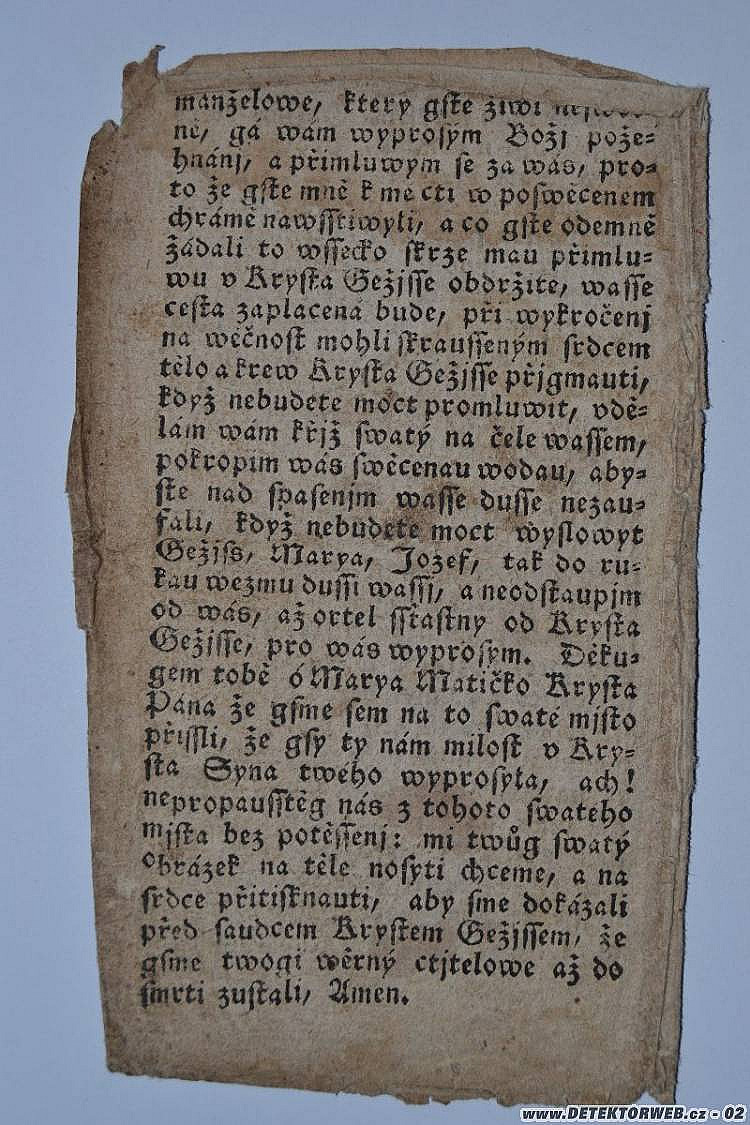 manželowe, který gſte žiwi
ne, gá wám wyproſým Božj pože-
hnánj, a přimluwym ſe za wás, pro-
to že gſte mně k mé cti w poſwěcenem
chrámě nawſſtiwyli, a co gſte odemně
žádali to wſſecko ſkrze mau přimlu-
wu v Kryſta Gežjſſe obdržíte, waſſe
ceſta zaplacená bude, při wykročenj
na wěčnoſt mohli ſkrauſſeným ſrdcem
tělo a krew Kryſta Gežjſſe přjgmauti,
když nebudete moct promluwit, vdě-
lám wám křjž ſwatý na čele waſſem,
pokropim wás ſwěcenau wodau, aby-
ſte nad ſpaſenjm waſſe duſſe nezau-
fali, když nebudete moct wyſlowyt
Gežjſs, Marya, Jozef, tak do ru-
kau wezmu duſſi waſſj, a neodſtaupjm
od wás, až ortel ſſtaſtny od Kryſta
Gežjſſe, pro wás wyproſym. Děku-
gem tobě ó Marya Matičko Kryſta
Pána že gſme ſem na to ſwaté mjſto
přiſſli, že gſy ty nám miloſt v Kry-
ſta Syna twého wyproſyla, ach!
nepropauſſtěg nás z tohoto ſwateho
mjſta bez potěſſenj: mi twůg ſwatý
obrázek na těle noſyti chceme, a na
ſrdce přitiſknauti, aby ſme dokázali
před ſaudcem Kryſtem Gežjſſem, že
gſme twogi wěrný ctjtelowe až do
ſmrti zuſtali, Amen.
www.DETEKTORWEB.cz - 02